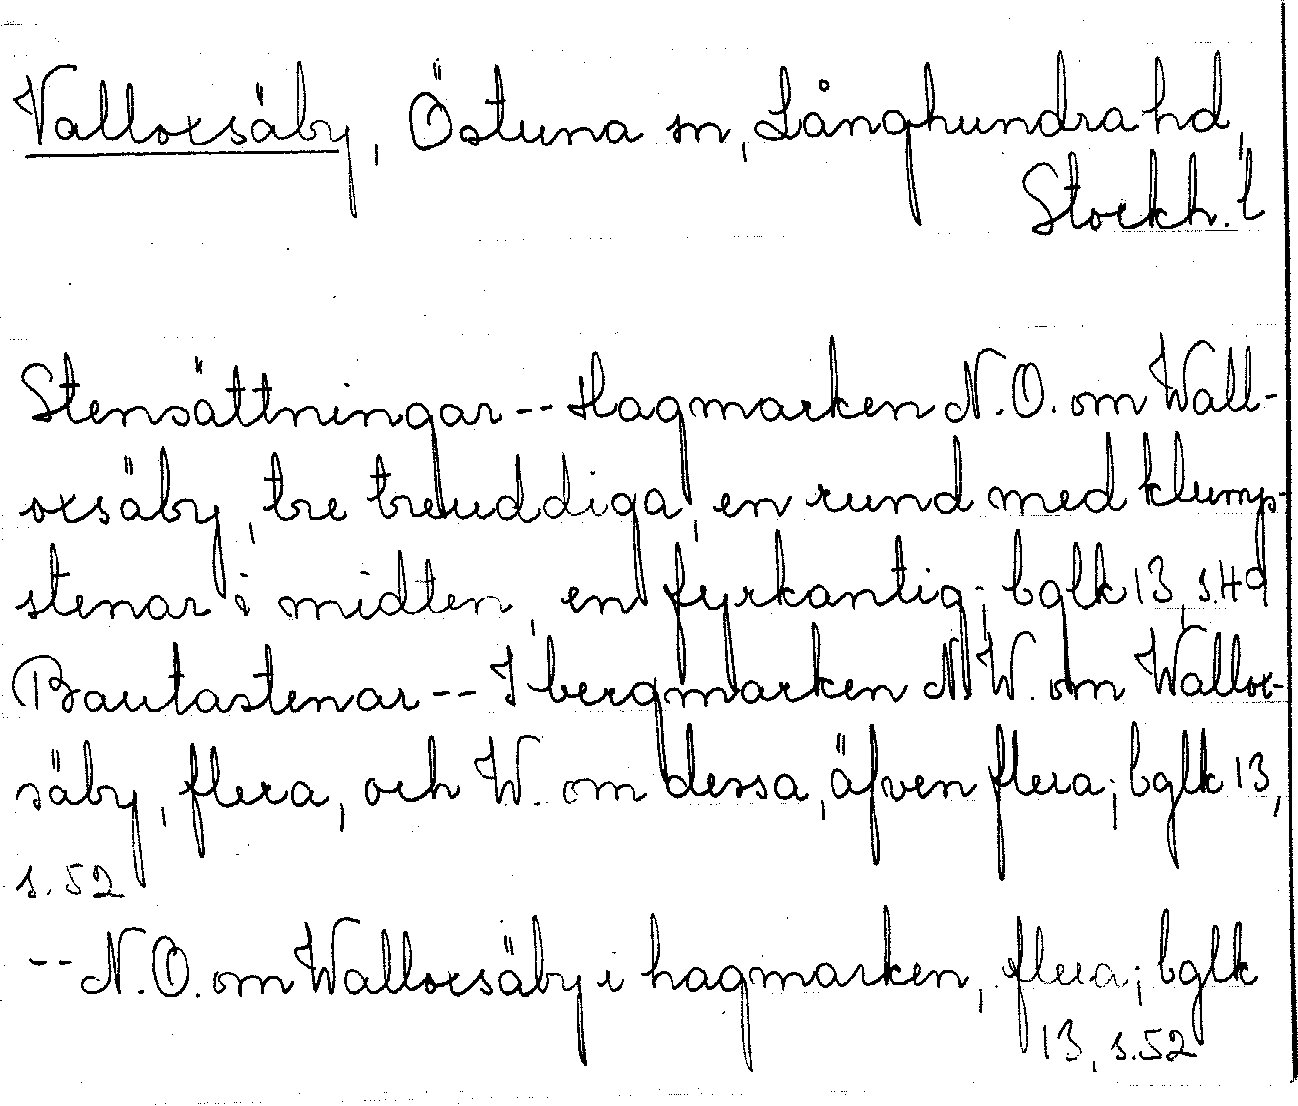 Valloxsäby, Östuna sn, Långhundra hd,
Stockh. l
Stensättningar -- Hagmarken N.O. om Wall-
oxsäby, tre treuddiga, en rund med klump-
stenar i midten, en fyrkantig; bglk 13, s.49
Bautastenar -- I bergmarken N.W. om Wallox-
säby, flera, och W. om dessa, äfven flera; bglk 13,
s.52
-- N.O. om Walloxsäby i hagmarken, flera; bglk
13, s.52